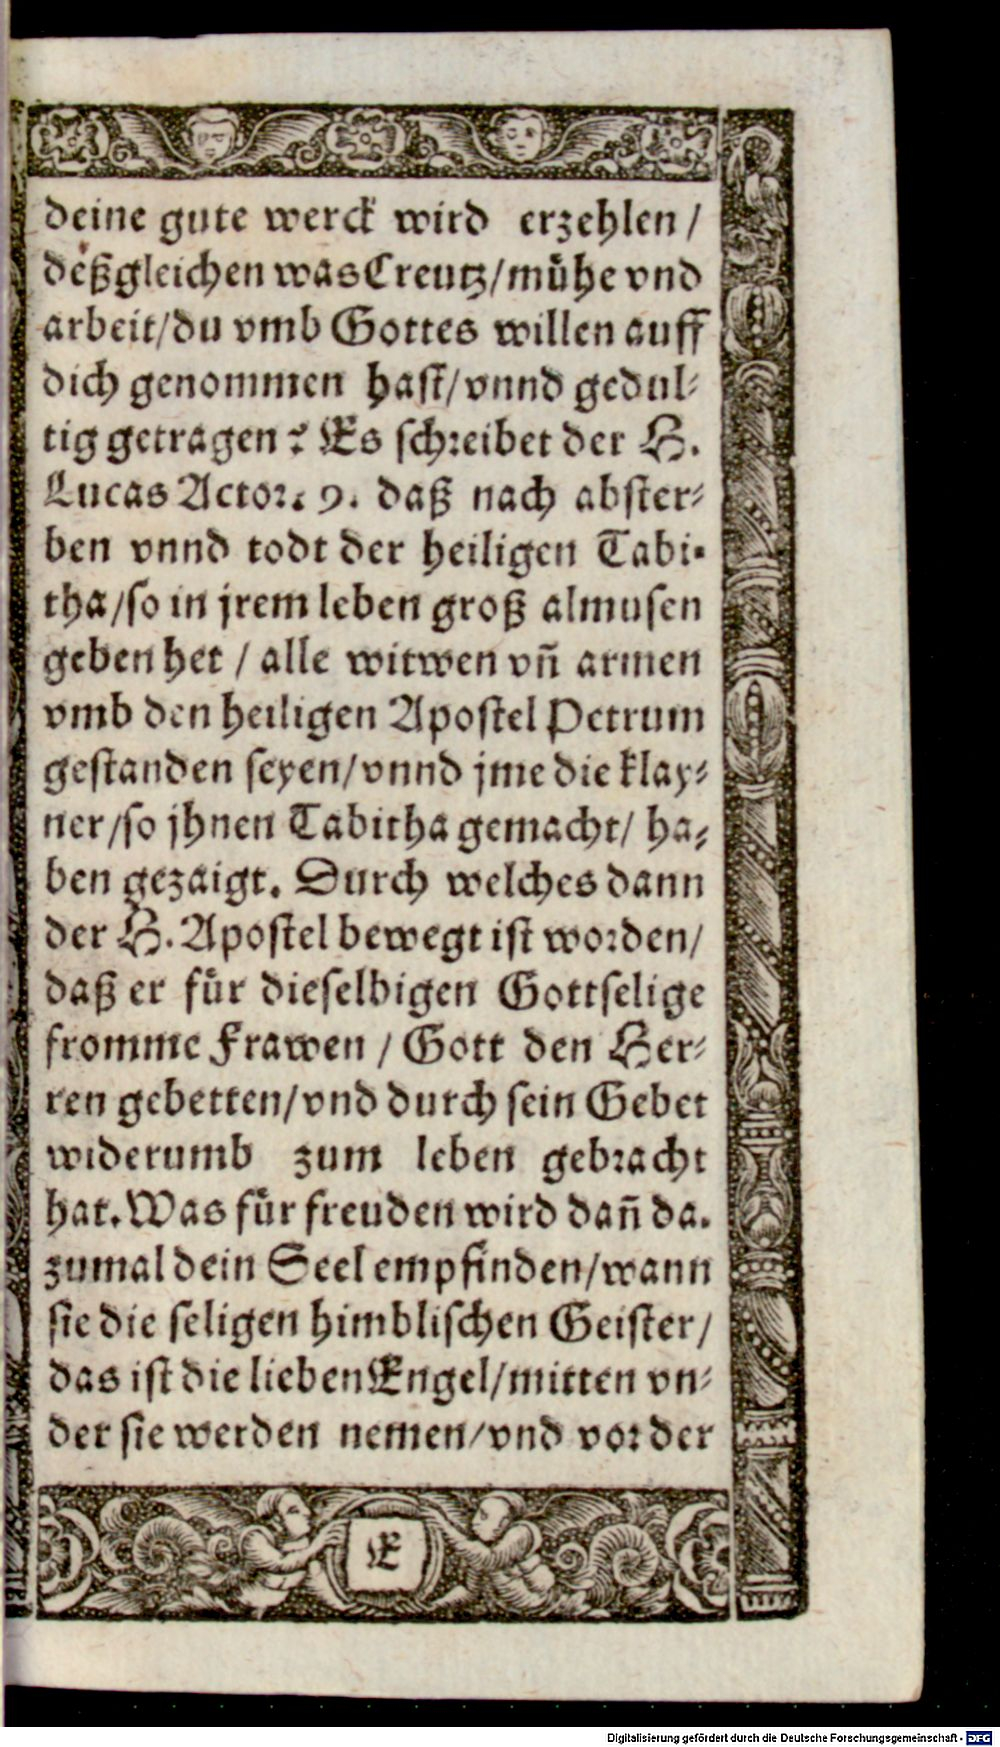 deine gute werck wird erzehlen /
deßgleichen was Creutz / můhe vnd
arbeit / du vmb Gottes willen auff
dich genommen hast / vnnd gedul⸗
tig getragen? Es schreibet der H.
Lucas Actor. 9. daß nach abster⸗
ben vnnd todt der heiligen Tabi⸗
tha / so in jrem leben groß almusen
geben het / alle witwen vñ armen
vmb den heiligen Apostel Petrum
gestanden seyen / vnnd jme die klay⸗
ner / so jhnen Tabitha gemacht / ha⸗
ben gezaigt. Durch welches dann
der H. Apostel bewegt ist worden /
daß er fůr dieselbigen Gottselige
fromme Frawen / Gott den Her⸗
ren gebetten / vnd durch sein Gebet
widerumb zum leben gebracht
hat. Was fůr freuden wird dañ da⸗
zumal dein Seel empfinden / wann
sie die seligen himblischen Geister /
das ist die lieben Engel / mitten vn⸗
der sie werden nemen / vnd vor der
E
Digitalisierung gefördert durch die Deutsche Forschungsgemeinschaft - DFG